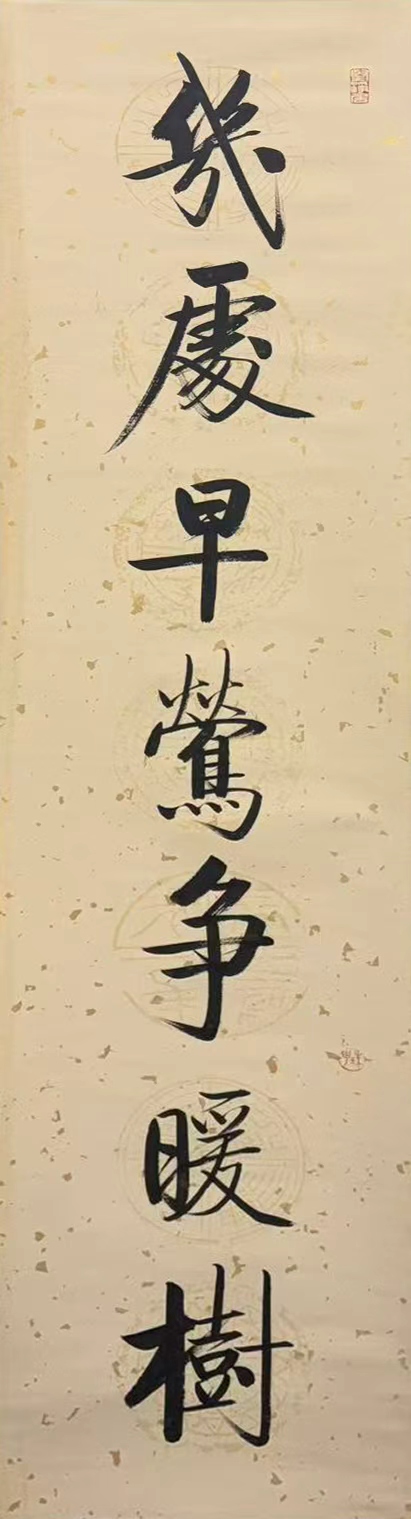 幾處早鶯争暖樹